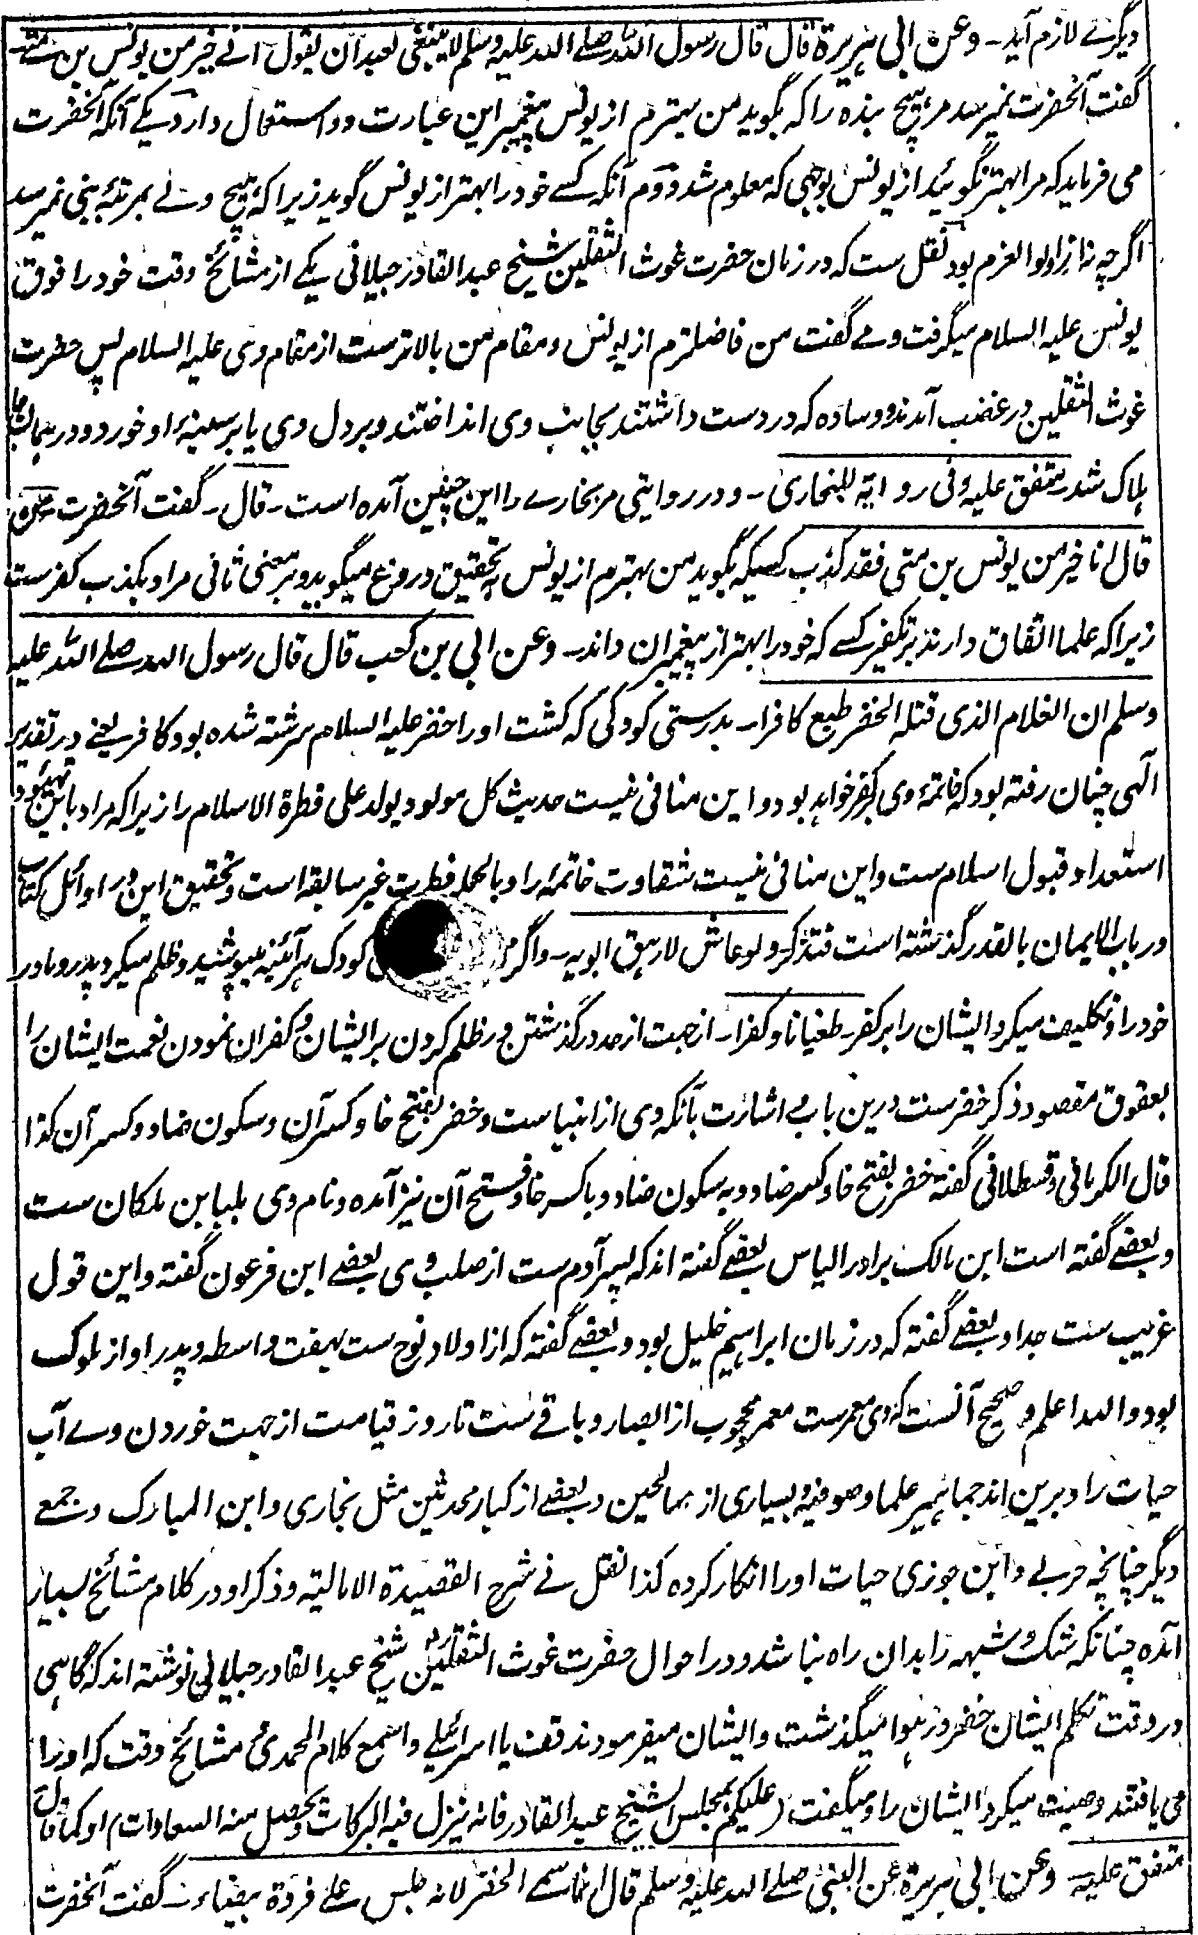 دیگرے لازم آید۔ وعن ابی ہریرۃ قال قال رسول اللہ صلے اللہ علیہ وسلم لا ینبغی لعبد ان یقول انے خیر من یونس بن متے
گفت آنحضرت نمیرسد مر ہیچ بندہ را کہ بگوید من بہترم از یونس پیغمبر این عبارت دو استعمال دارد یکے آنکہ آنحضرت
می فرماید کہ مرا بہتر نگوئید از یونس بوجہی کہ معلوم شد دوم آنکہ کسے خود را بہتر از یونس گوید زیرا کہ ہیچ ولے بمرتبہ نبی نمیرسد
اگرچہ نہ از اولوالعزم بود نقل ست کہ در زمان حضرت غوث الثقلین شیخ عبدالقادر جیلانی یکے از مشائخ وقت خود را فوق
یونس علیہ السلام میگرفت ومے گفت من فاضلترم از یونس ومقام من بالاترست از مقام وی علیہ السلام پس حضرت
غوث الثقلین در غضب آمدند ووسادہ کہ در دست داشتند بجانب وی انداختند وبر دل وی یا بر سینہ او خورد ودر ہمانجا
ہلاک شد متفق علیہ وفی روایۃ للبخاری۔ ودر روایتی مر بخارے را این چنین آمدہ است۔ قال۔ گفت آنحضرت من
قال انا خیر من یونس بن متی فقد کذب کسیکہ بگوید من بہترم از یونس بہ تحقیق دروغ میگوید وبر معنی ثانی مراد بکذب کفرست
زیرا کہ علما اتفاق دارند بر تکفیر کسے کہ خود را بہتر از پیغمبران داند۔ وعن ابی بن کعب قال قال رسول اللہ صلے اللہ علیہ
وسلم ان الغلام الذی قتلہ الخضر طبع کافرا۔ بدرستی کودکی کہ کشت اورا خضر علیہ السلام سرشتہ شدہ بود کافر یعنے در تقدیر
الٰہی چنان رفتہ بود کہ خاتمۂ وی بکفر خواہد بود واین منافی نیست حدیث کل مولود یولد علی فطرۃ الاسلام را زیرا کہ مراد باین
استعداد قبول اسلام ست واین منافی نیست شقاوت خاتمہ را وبالجملہ فطرت غیر سابقہ است وتحقیق این در اوائل کتاب
در باب الایمان بالقدر گذشتہ است فتذکر ولو عاش لارہق ابویہ۔ واگر کودک ہر آئینہ میپوشید وظلم میکرد پدر ومادر
خود را وتکلیف میکرد ایشان را بر کفر۔ طغیانا وکفرا۔ از جہت از حد درگذشتن در ظلم کردن بر ایشان وکفران نمودن نعمت ایشان را
بعقوق مقصود ذکر خضرست درین باب واشارت بآنکہ وی از انبیاست وخضر بفتح خا وکسر آن وسکون ضاد وکسر آن کذا
قال الکرمانی وقسطلانی گفتہ خضر بفتح خا وکسر ضاد وبہ سکون ضاد وباکسر خا وفتح آن نیز آمدہ ونام وی بلیا بن ملکان ست
وبعضے گفتہ است ابن مالک برادر الیاس بعضے گفتہ اند کہ پسر آدم ست از صلب وی بعضے ابن فرعون گفتہ واین قول
غریب ست جدا وبعضے گفتہ کہ در زمان ابراہیم خلیل بود وبعضے گفتہ کہ از اولاد نوح ست بہفت واسطہ وپدر او از ملوک
بود واللہ اعلم وصحیح آنست کہ وی معمرست معمر محجوب از ابصار وباقے ست تا روز قیامت از جہت خوردن وے آب
حیات را وبرین اند جماہیر علما وصوفیہ وبسیاری از صالحین وبعضے از کبار محدثین مثل بخاری وابن المبارک وجمعے
دیگر چنانچہ حربے وابن جوزی حیات اورا انکار کردہ کذا نقل فے شرح القصیدۃ الامالیۃ وذکر او در کلام مشائخ بسیار
آمدہ چنانکہ شک وشبہہ را بدان راہ نباشد ودر احوال حضرت غوث الثقلین شیخ عبدالقادر جیلانی نوشتہ اند کہ گاہی
در وقت تکلم ایشان خضر در ہوا میگذشت وایشان میفرمودند قف یا اسرائیلی واسمع کلام المحمدی مشائخ وقت کہ اورا
می یافتند وصیت میکرد ایشان را ومیگفت (علیکم بمجلس الشیخ عبدالقادر فانہ ینزل فیہ البرکات ویحصل منہ السعادات) او کما قال
متفق علیہ۔ وعن ابی ہریرۃ عن النبی صلے اللہ علیہ وسلم قال انما سمے الخضر لانہ جلس علے فروۃ بیضاء۔ گفت آنحضرت